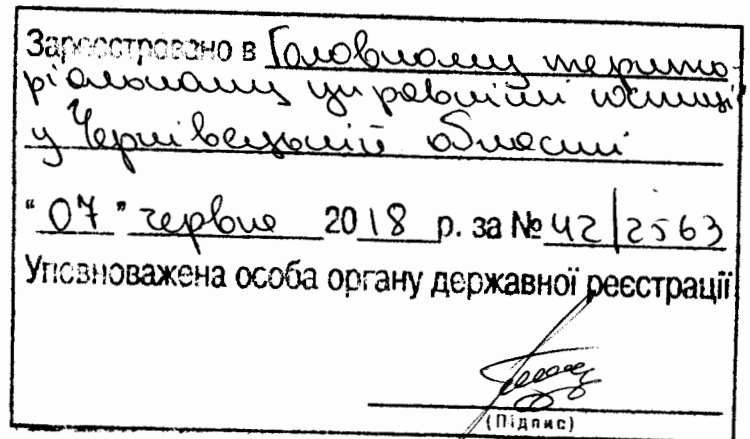 Зареєстровано в Головному терито-
ріальному управлінні юстиції
у Чернівецькій області
"07" червня 2018 р. за № 42/2563
Уповноважена особа органу державної реєстрації
(Підпис)